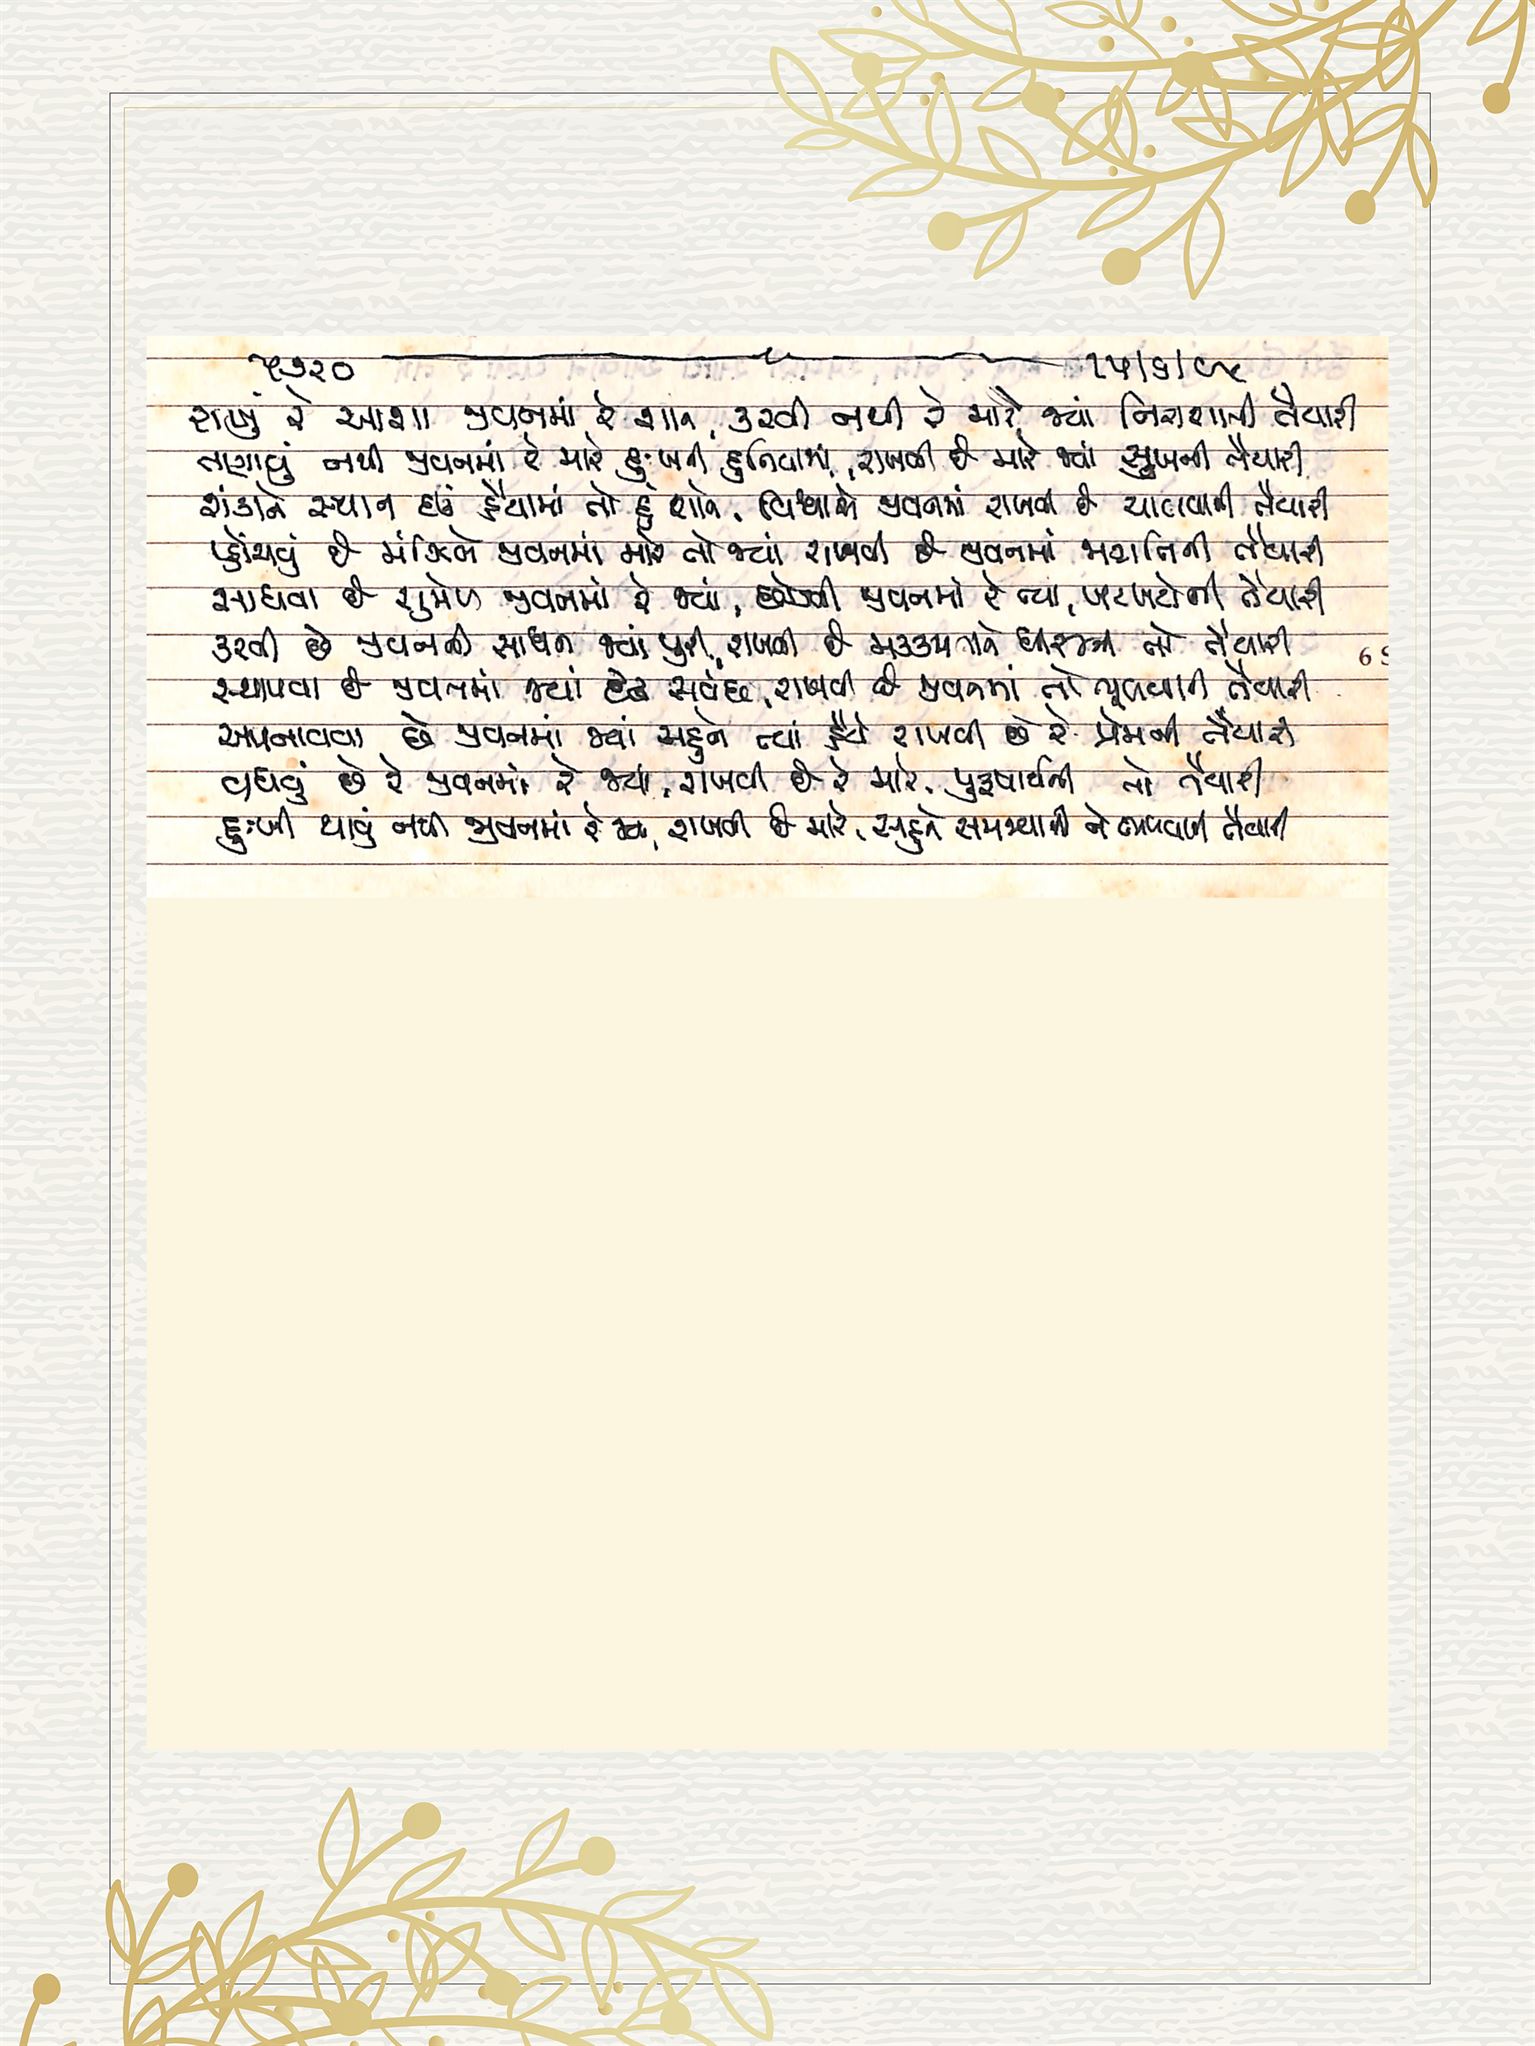 ૫૭૨૦ ૧૫/૬/૯૫
રાખું રે આશા જીવનમાં રે શાને, કરવી નથી રે મારે જ્યાં નિરાશાની તૈયારી
તણાવું નથી જીવનમાં રે મારે દુઃખની દુનિયામાં, રાખવી છે મારે જ્યાં સુખની તૈયારી
શંકાને સ્થાન દઉં હૈયામાં તો હું શાને, વિશ્વાસે જીવનમાં રાખવી છે ચાલવાની તૈયારી
પહોંચવું છે મંઝિલે જીવનમાં મારે તો જ્યાં રાખવી છે જીવનમાં તૈયારી
સાધવા છે સુમેળ જીવનમાં રે જ્યાં, છોડવી જીવનમાં રે ત્યાં, ખટપટોની તૈયારી
કરવી છે જીવનની સાધના જ્યાં પુરી, રાખવી છે મક્કમતાને ધીરજની તો તૈયારી
સ્થાપવા છે જીવનમાં જ્યાં સબંધ, રાખવી છે જીવનમાં તો તૈયારી
અપનાવવા છે જીવનમાં જ્યાં સહુને ત્યાં હૈયે રાખવી છે રે પ્રેમની તૈયારી
વધવું છે રે જીવનમાં રે જ્યાં, રાખવી છે રે મારે, પુરૂષાર્થની તો તૈયારી
દુઃખી થાવું નથી જીવનમાં રે જ્યાં, રાખવી છે મારે, સહુને સમજવાની ને તૈયારી